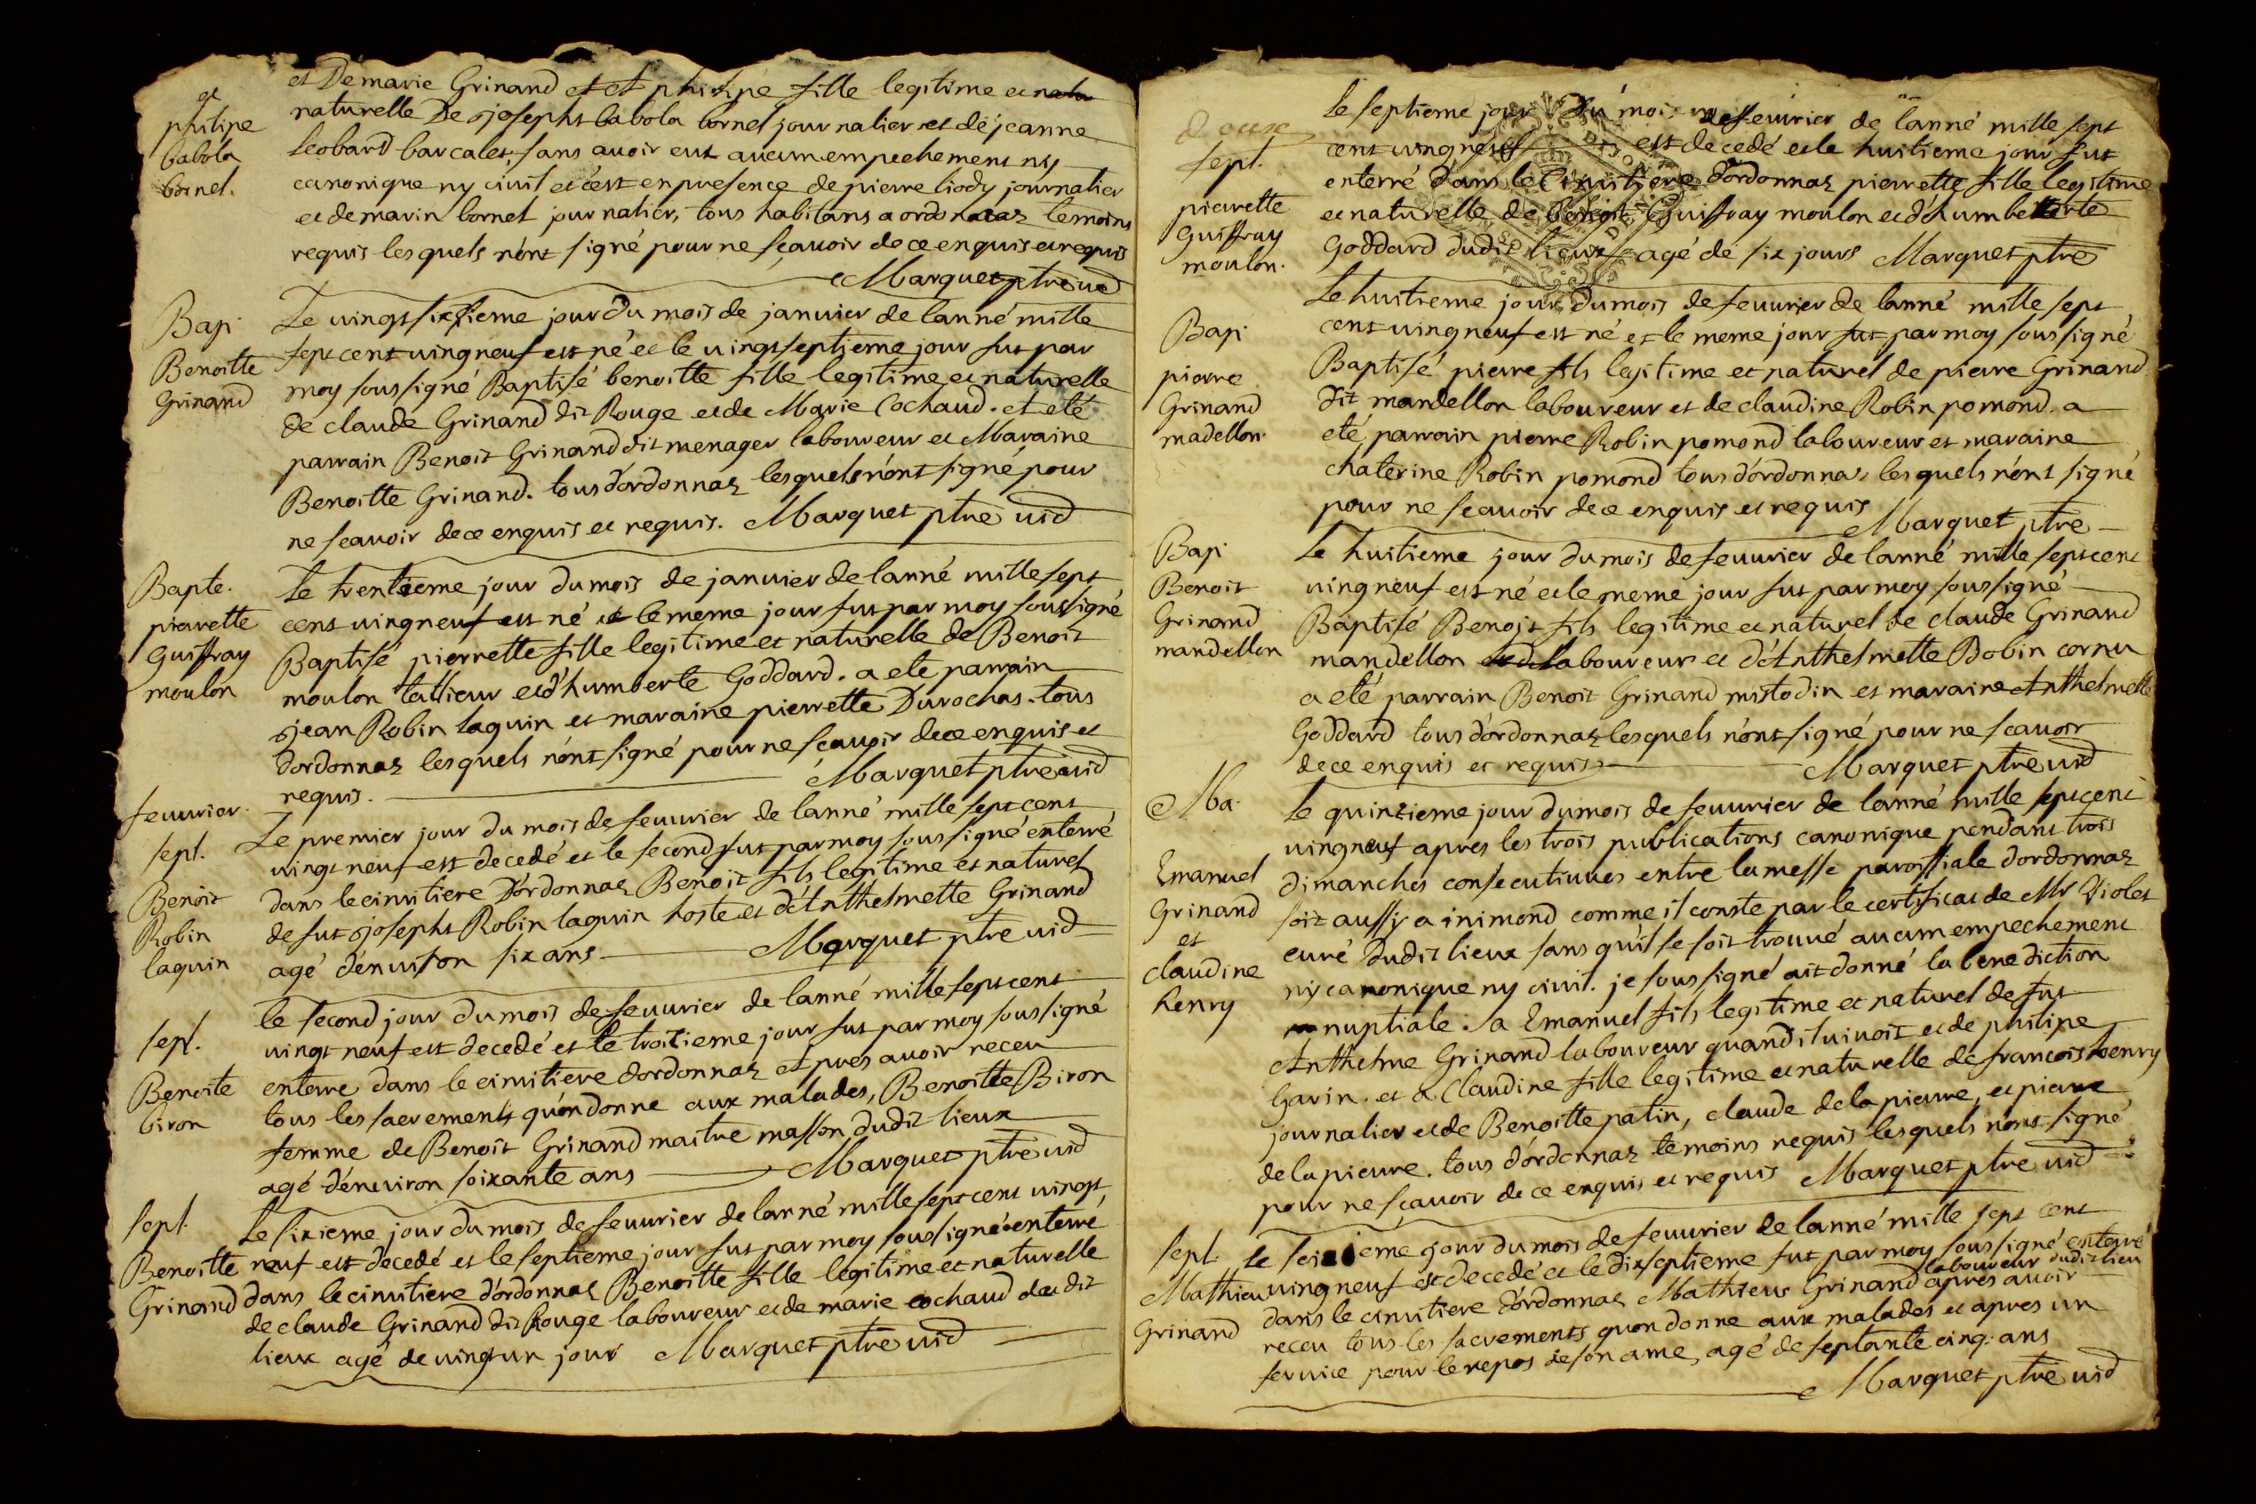 et De marie Grinand et et philipe fille legitime et natu
et
philipe
babola
bornel.
naturelle De josepht babola bornel journalier et de jeanne
Leobard barcalet, sans avoir eut aucun empechement ny
canonique ny civil et c'est en presence de pierre liody journalier
et de marin bornel journalier, tous habitans a ordonnaz temoins
requis lesquels n'ont signé pour ne sçavoir de ce enquis et requis
Marquet ptre vid
Bap:
Benoitte
Grinand
Le vingt sixieme jour du mois de janvier de lanné mille
sept cent vingneuf est né et le vingt septieme jour fut par
moy soussigné Baptisé benoitte fille legitime et naturelle
de claude Grinand dit Rouge et de Marie Cochaud. et eté
parrain Benoit Grinand dit menager laboureur et Maraine
Benoitte Grinand. tous d'ordonnaz lesquels n'ont signé pour
ne scavoir de ce enquis et requis. Marquet ptre vid
Bapte.
pierrette
Guiffray
moulon
Le trentieme jour du mois de janvier de lanné mille sept
cent vingneuf est né et le meme jour fut par moy soussigné
Baptisé pierrette fille legitime et naturelle de Benoit
moulon tallieur et d'humberte Goddard. a ete parrain
jean Robin laquin et maraine pierrette Durochas. tous
dordonnaz lesquels n'ont signé pour ne sçavoir de ce enquis et
requis. Marquet ptre vid
fevurier.
sept.
Benoit
Robin
laquin
Le premier jour du mois de fevurier de lanné mille sept cent
vingt neuf est decedé et le second fut par moy soussigné enterré
dans le cimitiere D'ordonnaz Benoit fils legitime et naturel
de fut josepht Robin laquin hoste et d'Anthelmette Grinand
agé d'environ six ans Marquet ptre vid
sept.
Benoite
biron
le second jour du mois de fevurier de lanné mille sept cent
vingt neuf est decedé et le troisieme jour fut par moy soussigné
enterré dans le cimitiere dordonnaz et pres avoir receu
tous les sacrements qu'on donne aux malades, Benoitte Biron
femme de Benoit Grinand maitre masson dudit lieux
agé d'environ soixante ans Marquet ptre vid
sept.
Benoitte
Grinand
Le sixieme jour du mois de fevurier de lanné mille sept cent vingt,
neuf est decedé et le septieme jour fut par moy soussigné enterré
dans le cimitiere d'ordonnaz Benoitte fille legitime et naturelle
de claude Grinand dit Rouge laboureur et de marie cochaud du dit
lieux agé de vingt un jour Marquet ptre vid
sept.
pierrette
Guiffray
moulon.
Le septieme jour Du mois de fevurier de lanné mille sept
cent vingneuf est decedé et le huitieme jour fut
enterré dans le Cimitiere d'ordonnaz pierrette fille legitime
et naturelle de benoit Guiffray moulon et d'humberte
Goddard dudit lieux agé de six jours Marquet ptre
Bap:
pierre
Grinand
madellon.
Le huitieme jour du mois de fevurier de lanné mille sept
cent vingneuf est né et le meme jour fut par moy soussigné
Baptisé pierre fils legitime et naturel de pierre Grinand
dit mandellon laboureur et de claudine Robin pomond. a
eté parrain pierre Robin pomond laboureur et maraine
chaterine Robin pomond tous d'ordonnaz lesquels n'ont signé
pour ne scavoir de ce enquis et requis
Marquet ptre
Bap:
Benoit
Grinand
mandellon
Le huitieme jour du mois de fevurier de lanné mille sept cent
vingneuf est né et le meme jour fut par moy soussigné
Baptisé Benoit fils legitime et naturel de claude Grinand
mandellon laboureur et d'Anthelmette Bobin cornu
a eté parrain Benoit Grinand mistodin et maraine Anthelmette
Goddard tous d'ordonnaz lesquels n'ont signé pour ne scavoir
de ce enquis et requis Marquet ptre vid
Ma.
Emanuel
Grinand
et
claudine
henry
Le quinzieme jour du mois de fevurier de lanné mille sept cent
vingneuf apres les trois publications canonique pendant trois
dimanches consecutivves entre la messe paroissiale dordonnaz
soit aussy a inimond comme il conste par le certificat de Mr Violet
curé dudit lieux sans qu'il se soit trouvé aucum empechement
ny canonique ny civil. je soussigné ait donné la benediction
nuptiale. a Emanuel fils legitime et naturel de fut
Anthelme Grinand laboureur quand il vivoit et de philipe
Garin. et a Claudine fille legitime et naturelle de francois henry
journalier et de Benoitte patin, claude de la pierre, et pierre
de la pierre. tous d'ordonnaz temoins requis lesquels n'ont signé
pour ne sçavoir de ce enquis et requis Marquet ptre vid
sept.
Mathieu
Grinand
Le seizieme jour du mois de fevurier de lanné mille sept cent
vingneuf est decedé et le dixseptieme fut par moy soussigné enterré
laboureur dudit lieu
dans le cimitiere d'ordonnaz Mathieu Grinand apres avoir
receu tous les sacrements quon donne aux malades et apres un
service pour le repos de son ame, agé de septante cinq. ans
Marquet ptre vid